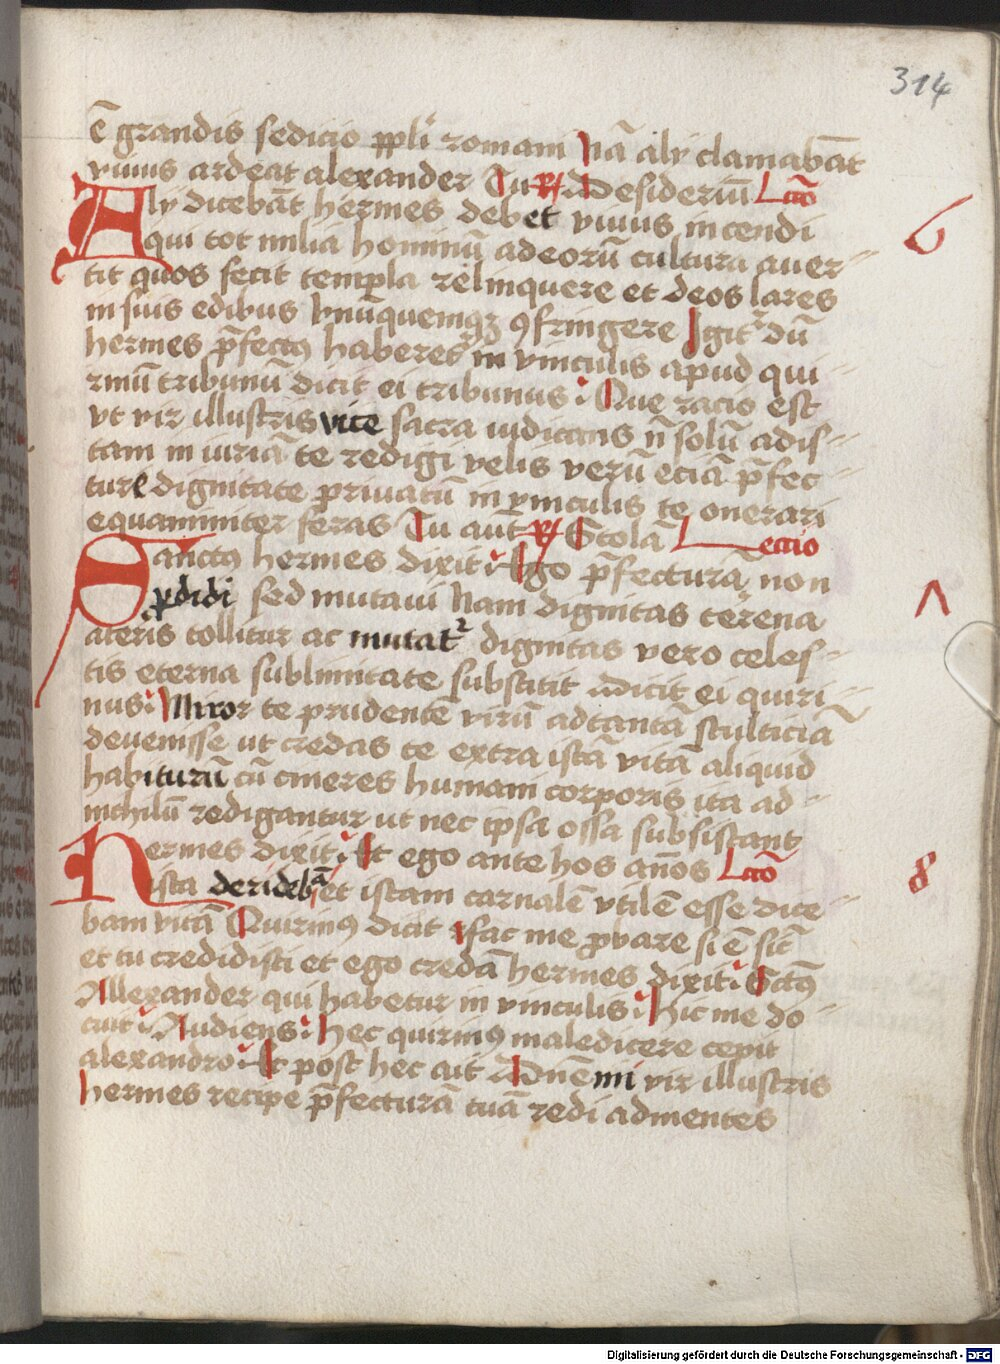 314
ē grandis sedicio ppli romani Nā alij clamabāt
viuus ardeat alexander Tu R Desideriū Lctō
Alij dicebāt hermes debet viuus incendi
6
qui tot milia hominū adeorū cultura auer
tit quos fecit templa relinquere et deos lares
in suis edibus vnūquemqꝫ ꝯfringere Igitr dū
hermes p̄fectꝰ haberetr in vinculis apud qui
rinū tribunū dicit ei tribunus Que racio est
vt vir illustris vite sacra iudicans n̄ solū adis
tam in iuriā te redigi velis verū eciā p̄fec
ture dignitate priuatū in vinculis te onerari
equanimiter feras Tu aut R Stolā Lectio
Sanctꝰ hermes dixit Ego p̄fecturā non
ꝑdidi sed mutaui Nam dignitas terena
7
ateris tollitur ac mutatr dignitas vero celes
tis eterna sublimitate subsistit Dicit ei quiri
nus Miror te prudentē virū adtantā stulticiā
devenisse ut credas te extra istā vitā aliquid
habiturū cū cineres humani corporis ita ad
nichilū redigantur ut nec ipsa ossa subsistant
hermes dixit Et ego ante hos años Lctō
8
ista deridebā et istam carnalē vtilē esse dice
bam vitā Quirinꝰ dicit fac me ꝓbare si ē sic
et tu credidisti et ego credā hermes dixit Sctūs
Allexander qui habetur in vinculis Hic me do
cuit Audiens hec quirinꝰ maledicere cepit
alexandro Et post hec ait Dn̄e mi vir illustris
hermes recipe p̄fecturā tuā redi admentes
Digitalisierung gefördert durch die Deutsche Forschungsgemeinschaft - DFG